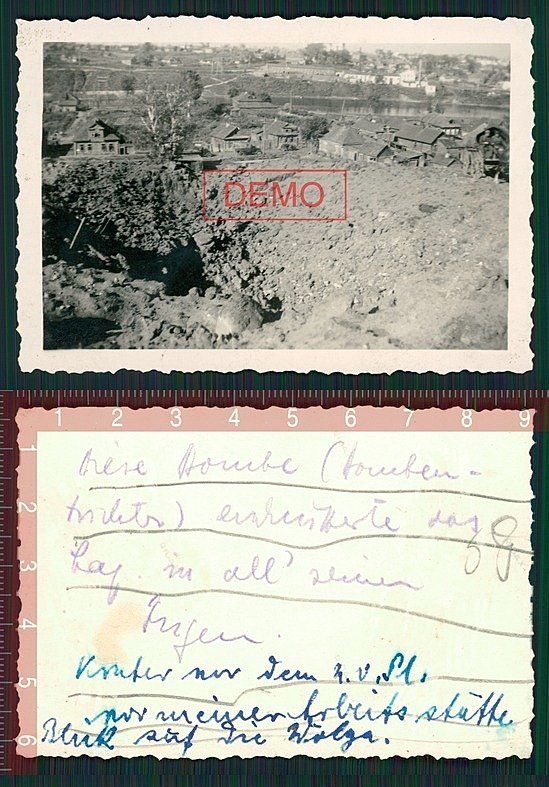 DEMO
1 2 3 4 5 6 7 8 9
1
2
3
4
5
6
Diese Bombe (Bomben-
trichter) erschütterte das
Laz. in all' seinen
Fugen.
38
vor dem
vor meiner Arbeitsstätte
Blick auf die Wolga.